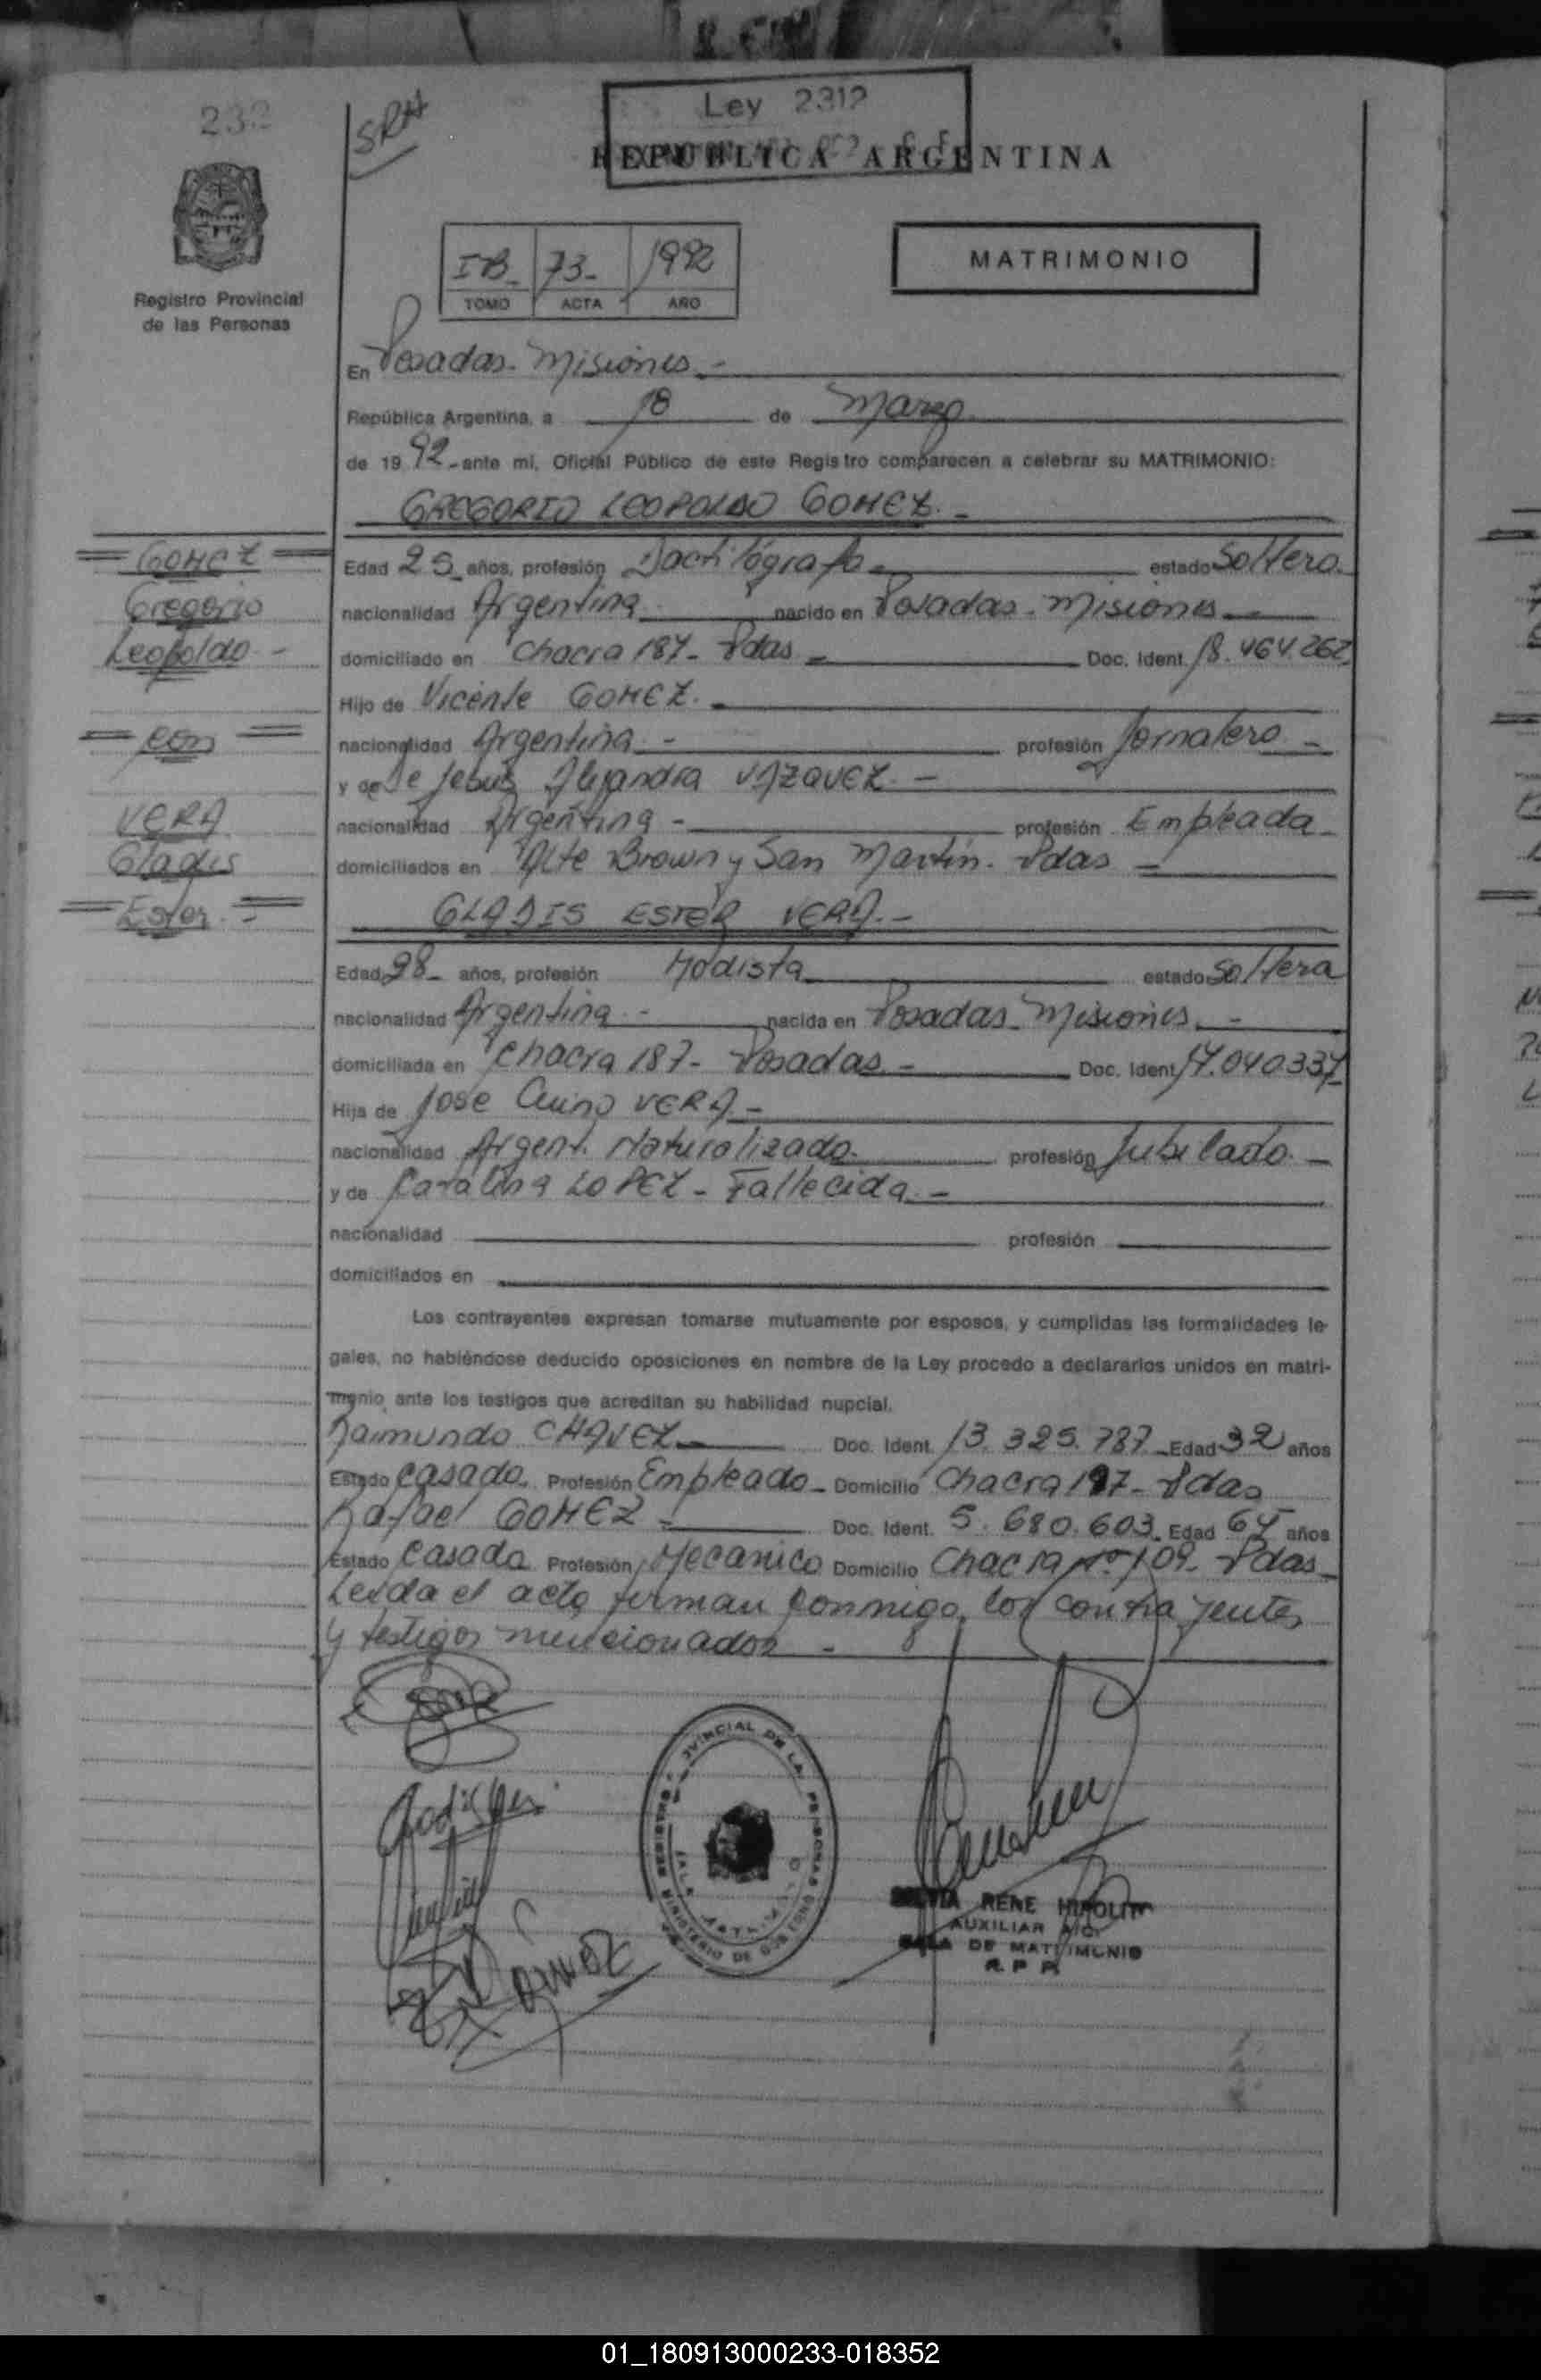 232
SRH
Ley 2312
REPUBLICA ARGENTINA
Registro Provincial
de las Personas
IB 73- 1992
TOMO ACTA AÑO
MATRIMONIO
En Posadas- Misiones-
República Argentina, a 18 de Marzo
de 19 92- ante mi, Oficial Público de este Registro comparecen a celebrar su MATRIMONIO:
GREGORIO LEOPOLDO GOMEZ.-
GOMEZ
Gregorio
Leopoldo-
con
VERA
Gladis
Ester-
Edad 25 años, profesión Dactilógrafo estado Soltero.
nacionalidad Argentina nacido en Posadas- Misiones
domiciliado en Chacra 187- Pdas Doc. Ident. 18.464.262
Hijo de Vicente GOMEZ.
nacionalidad Argentina- profesión Jornalero-
y de de Jesus Alejandra VAZQUEZ.-
nacionalidad Argentina- profesión Empleada-
domiciliados en Alte Brown y San Martín- Pdas-
GLADIS ESTER VERA.-
Edad 28- años, profesión Modista estado Soltera
nacionalidad Argentina- nacida en Posadas- Misiones.-
domiciliada en Chacra 187- Posadas.- Doc. Ident. 17.040.337
Hija de Jose Quino VERA-
nacionalidad Argent. Naturalizado. profesión Jubilado.-
y de Catalina LOPEZ- Fallecida.-
nacionalidad profesión
domiciliados en
Los contrayentes expresan tomarse mutuamente por esposos, y cumplidas las formalidades le-
gales, no habiéndose deducido oposiciones en nombre de la Ley procedo a declararlos unidos en matri-
monio ante los testigos que acreditan su habilidad nupcial.
Raimundo CHAVEZ Doc. Ident. 13.325.787 Edad 32 años
Estado Casado. Profesión Empleado- Domicilio Chacra 187- Pdas
Rafael GOMEZ- Doc. Ident. 5.680.603. Edad años
Estado Casado Profesión Mecanico Domicilio Chacra Nº 109- Pdas
Leida el acta firman conmigo, los contrayentes
y testigos mencionados-
REGISTRO PROVINCIAL DE LAS PERSONAS
MINISTERIO DE GOBIERNO
RENE HIPOLITO
AUXILIAR A/C.
SALA DE MATRIMONIO
R. P. P.
01_180913000233-018352